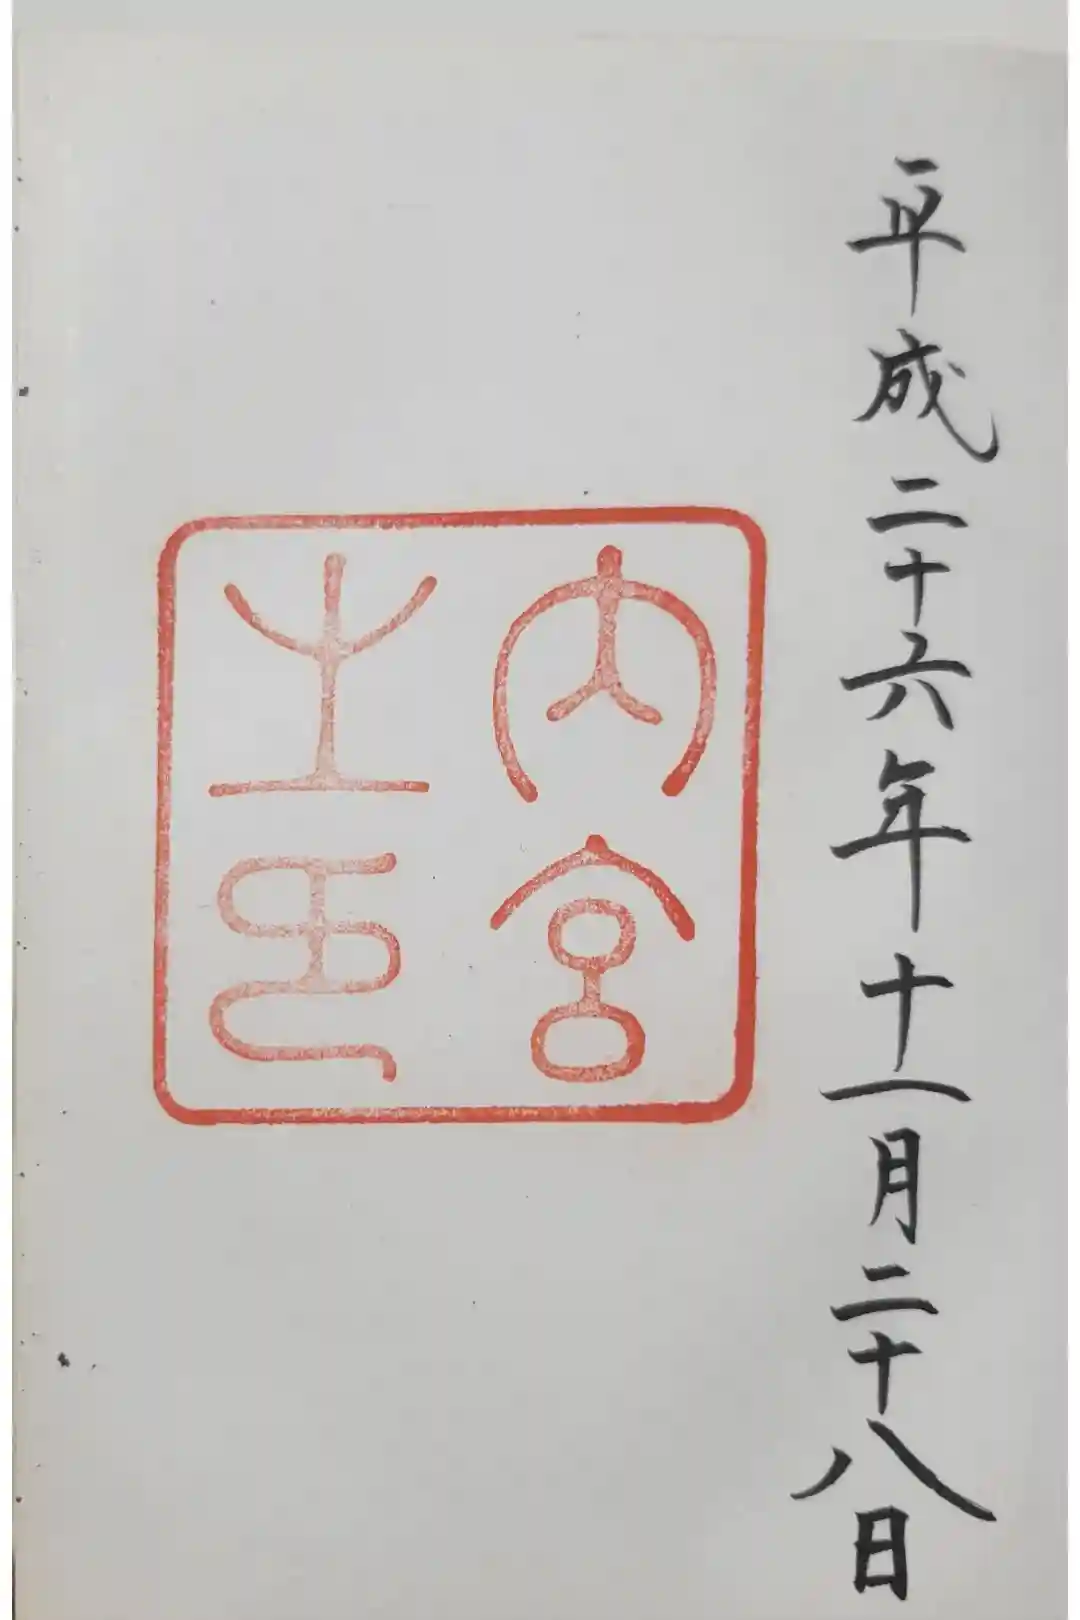 平成二十六年十一月二十八日
内宮
之印